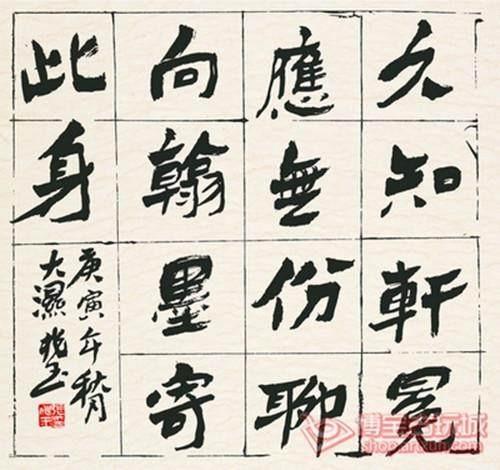 久知軒冕
應無份聊
向翰墨寄
此身
庚寅年秋月
博宝古玩城
shop.artxun.com